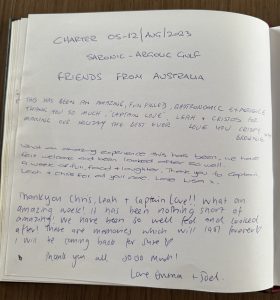 CHARTER 05-12/AUG/2023
SARONIC - ARGOLIC GULF
FRIENDS FROM AUSTRALIA
THIS HAS BEEN AN AMAZING, FUN FILLED, GASTRONOMIC EXPERIENCE
THANK YOU SO MUCH, CAPTAIN LOVE, LEAH & CHRISTOS FOR
MAKING OUR HOLIDAY THE BEST EVER LOVE YOU
What an amazing experience this has been, we have
felt welcome and been looked after so well.
A week of fun, food & laughter. Thank you to Captain,
Leah & Chris for all you have. Love x.
Thankyou Chris, Leah & Captain Love!! What an
amazing week! it has been nothing short of
amazing! we have been so well fed and looked
after! these are memories which will last forever♡
I will be coming back for sure♡
Thank you all so so much!
Love Emma + Joel.